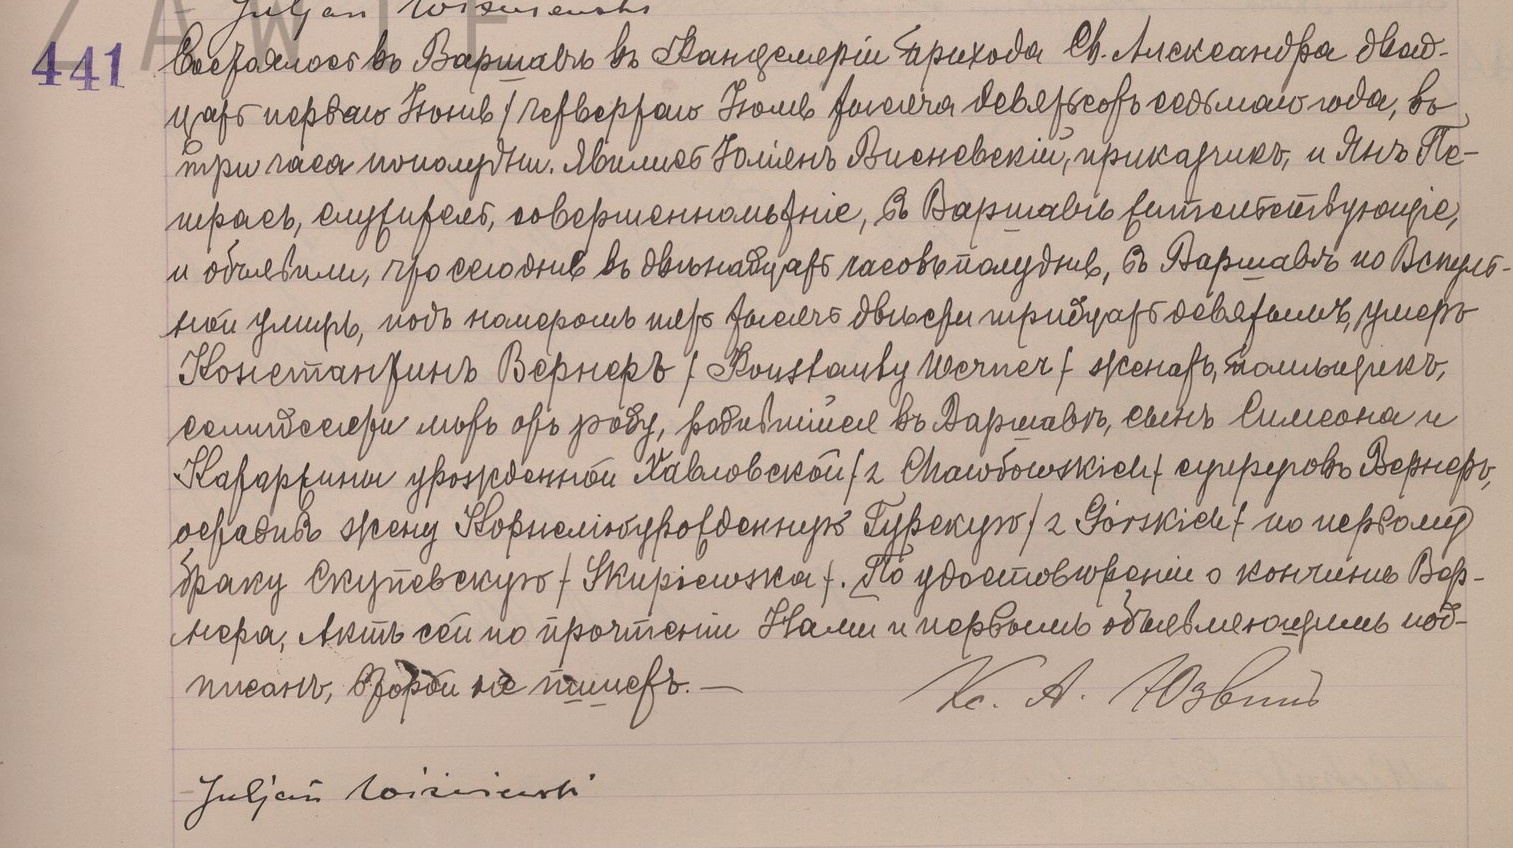 Juljan Wiśniewski
ZAWIE
441
Состоялось въ Варшавѣ въ Канцеляріи прихода Св. Александра двад-
цать перваго Іюня / четвертаго Іюля тысяча девятьсотъ седьмаго года, въ
три часа пополудни. Явились Юліянъ Висневскій, приказчикъ, и Янъ Пе-
трась, служитель, совершеннолѣтніе, въ Варшавѣ жительствующіе,
и объявили, что сегодня въ двѣнадцать часовъ полудня, въ Варшавѣ по Вспуль-
ной улицѣ, подъ номеромъ пять тысячъ двѣсти тридцать девятымъ, умеръ
Константинъ Вернеръ / Konstanty Werner / женатъ,
семидесяти лѣтъ отъ роду, родившійся въ Варшавѣ, сынъ Симеона и
Катаржины урожденной Хавловской / z Chawłowskich / супруговъ Вернеръ,
оставивъ жену Корнелію урожденную Гурскую / z Górskich / по первому
браку Скупевскую / Skupiewska /. По удостовѣреніи о кончинѣ Вер-
нера, Актъ сей по прочтеніи Нами и первымъ объявляющимъ под-
писанъ, второй не пишетъ. —
Кс. А.
Juljan Wiśniewski